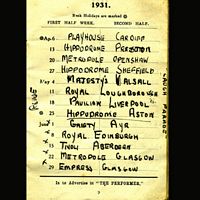 1931.
Bank Holidays are marked @
FIRST HALF WEEK. SECOND HALF.
@ Ap. 6 PLAYHOUSE CARDIFF
13 HIPPODROME PRESTON
20 METROPOLE OPENSHAW
27 HIPPODROME SHEFFIELD
May 4 MAJESTY'S WALSALL
11 ROYAL LOUGHBOROUGH
18 PAVILION LIVERPOOL
@ 25 HIPPODROME ASTON
June 1 GAIETY AYR
8 ROYAL EDINBURGH
15 TIVOLI ABERDEEN
22 METROPOLE GLASGOW
29 EMPRESS GLASGOW
Is to Advertise in "THE PERFORMER."
7